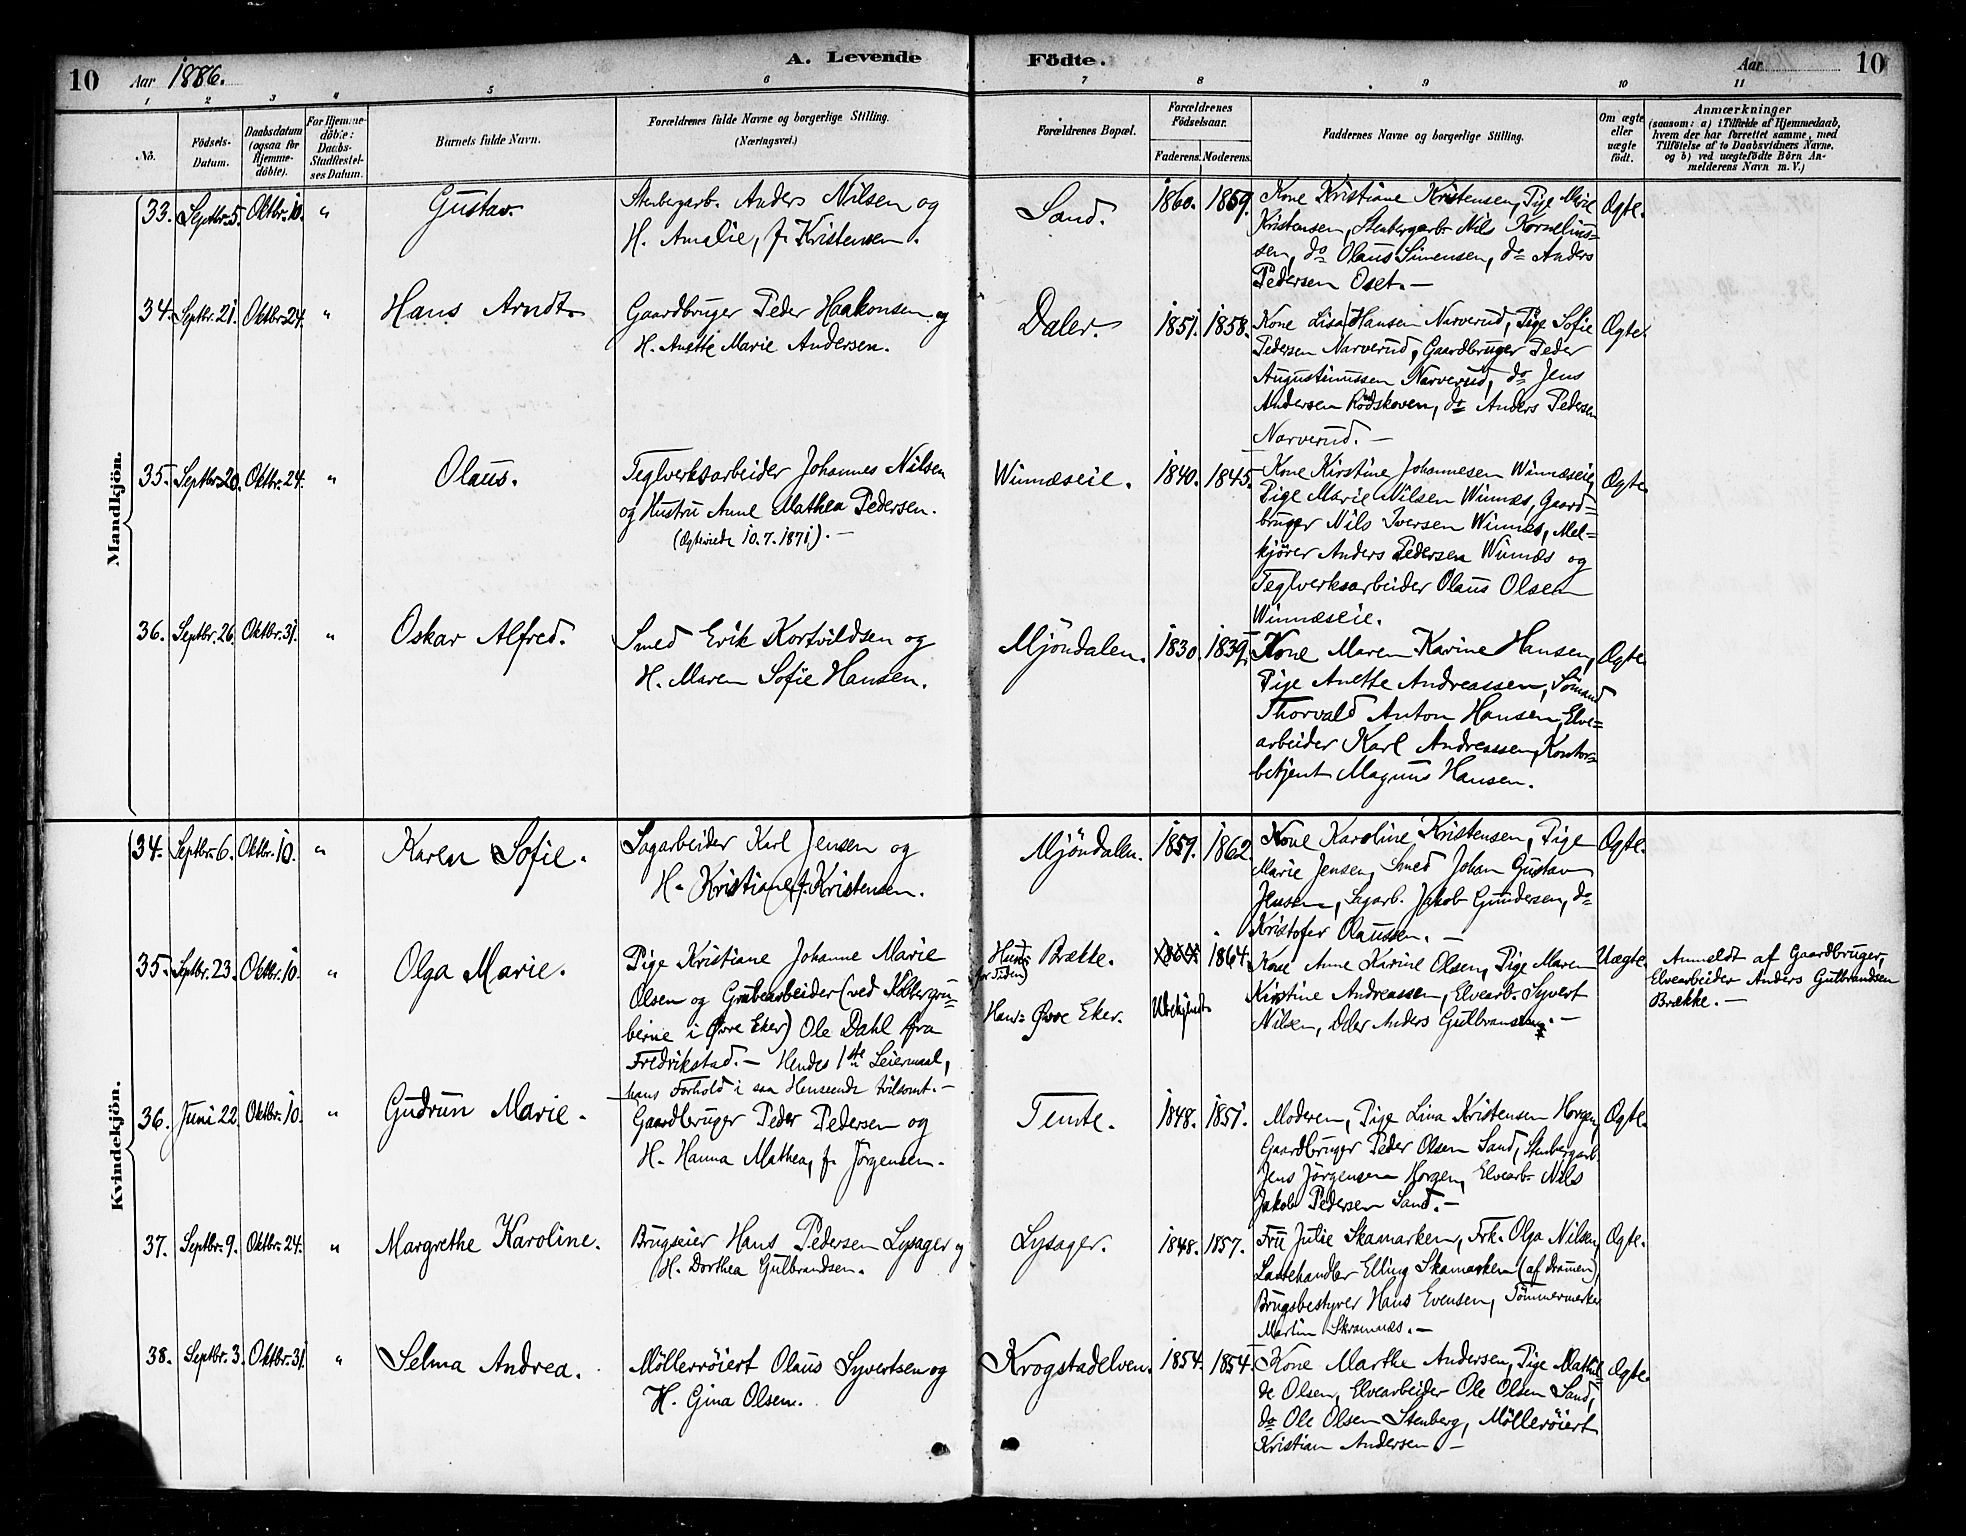 10 Aar 1886. A. Levende Födte. Aar 10
1 2 3 4 5 6 7 8 9 10 11
No.
Födsels-
Datum.
Daabsdatum
(ogsaa for
Hjemme-
döbte).
For Hjemme-
döbte:
Daabs-
Stadfæstel-
ses Datum.
Barnets fulde Navn.
Forældrenes fulde Navne og borgerlige Stilling.
(Næringsvei.)
Forældrenes Bopæl.
Forældrenes
Födselsaar.
Faderens. Moderens.
Faddernes Navne og borgerlige Stilling.
Om ægte
eller
uægte
födt.
Anmærkninger
(saasom: a) i Tilfælde af Hjemmedaab,
hvem der har forrettet samme, med
Tilföielse af to Daabsvidners Navne.
og b) ved uægtefödte Börn An-
melderens Navn m. V.)
Mandkjön.
33. Septbr. 5. Oktbr. 10. " Gustav.
Stenbergarb. Anders Nilsen og
H. Amalie, f. Kristensen.
Sand. 1860. 1859.
Kone Kristiane Kristensen, Pige Marie
Kristensen, Stenbergarb. Nils Kornelius=
sen, do Olaus Simensen, do Anders
Pedersen Oset. —
Ægte.
34. Septbr. 21. Oktbr. 24. " Hans Arndt.
Gaardbruger Peder Haakonsen og
H. Anette Marie Andersen.
Daler. 1851. 1858.
Kone Lisa Hansen Narverud, Pige Sofie
Pedersen Narverud, Gaardbruger Peder
Augustinussen Narverud, do Jens
Andersen Rödskoven, do Anders Pedersen
Narverud. —
Ægte.
35. Septbr. 20. Oktbr. 24. " Olaus.
Teglverksarbeider Johannes Nilsen
og Hustru Anne Mathea Pedersen.
(Ægteviede 10.7.1871). —
Winnæseie. 1840. 1845.
Kone Kirstine Johannesen Winnæseie,
Pige Marie Nilsen Winnæs, Gaard=
bruger Nils Iversen Winnæs, Mel=
kjörer Anders Pedersen Winnæs og
Teglverksarbeider Olaus Olsen
Winnæseie.
Ægte.
36. Septbr. 26. Oktbr. 31. " Oskar Alfred.
Smed Erik Kortvildsen og
H. Maren Sofie Hansen.
Mjöndalen. 1830. 1839.
Kone Maren Karine Hansen,
Pige Anette Andreassen, Sömand
Thorvald Anton Hansen, Elve=
arbeider Karl Andreassen, Kontor=
betjent Magnus Hansen.
Ægte.
Kvindekjön.
34. Septbr. 6. Oktbr. 10. " Karen Sofie.
Sagarbeider Karl Jensen og
H. Kristiane, f. Kristensen.
Mjöndalen. 1859. 1862.
Kone Karoline Kristensen, Pige
Marie Jensen, Smed Johan Gustav
Jensen, Sagarb. Jakob Gundersen, do
Kristofer Olaussen. —
Ægte.
35. Septbr. 23. Oktbr. 10. " Olga Marie.
Pige Kristiane Johanne Marie
Olsen og Grubearbeider (ved Kobbergru=
berne i Øvre Eker) Ole Dahl fra
Fredrikstad. — Hendes 1ste Leiermaal,
hans Forhold i saa Henseende tvilsomt. —
Hendes
(for Tiden) Brække.
Hans: Øvre Eker.
1864.
Ubekjendt.
Kone Anne Karine Olsen, Pige Maren
Kirstine Andreassen, Elvearb. Syvert
Nilsen, Anders Gulbrandsen. —
Uægte.
Anmeldt af Gaardbruger,
Elvearbeider Anders Gulbrandsen
Brække. —
36. Juni 22 Oktbr. 10. " Gudrun Marie.
Gaardbruger Peder Pedersen og
H. Hanna Mathea, f. Jörgensen.
Temte. 1848. 1851.
Moderen, Pige Lina Kristensen Horgen,
Gaardbruger Peder Olsen Sand, Stenbergarb.
Jens Jörgensen Horgen, Elvearb. Nils
Jakob Pedersen Sand. —
Ægte.
37. Septbr. 9. Oktbr. 24. " Margrethe Karoline.
Brugseier Hans Pedersen Lysager og
H. Dorthea Gulbrandsen.
Lysager. 1848. 1857.
Fru Julie Skamarken, Frk. Olga Nilsen,
Landhandler Elling Skamarken (af Dramen),
Brugsbestyrer Hans Evensen, Tömmermerker
Martin Skramnæs. —
Ægte.
38. Septbr. 3. Oktbr. 31. " Selma Andrea.
Möllerröiert Olaus Syvertsen og
H. Gina Olsen.
Krogstadelven. 1854. 1854.
Kone Marthe Andersen, Pige Mathil=
de Olsen, Elvearbeider Ole Olsen Sand,
do Ole Olsen Stenberg, Möllerröiert
Kristian Andersen. —
Ægte.